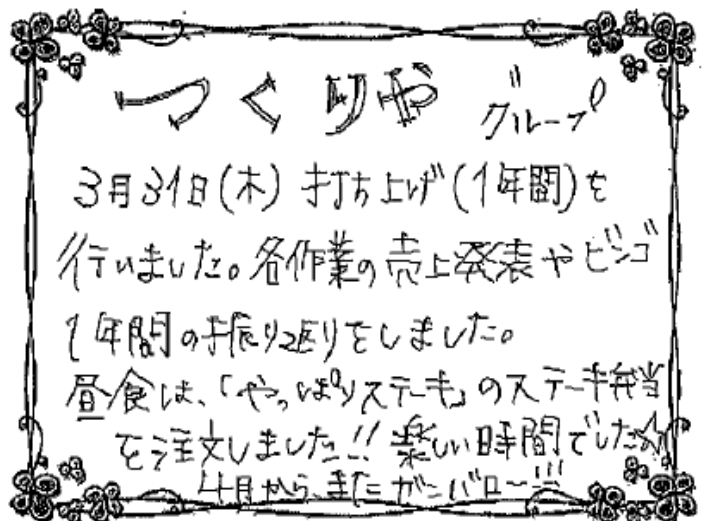 つくりや グループ
3月31日(木) 打ち上げ(1年間)を
行いました。各作業の売上発表やビンゴ
1年間の振り返りをしました。
昼食は、「やっぱりステーキ」のステーキ弁当
を注文しました!! 楽しい時間でした☆
4月から、またガンバロー!!!